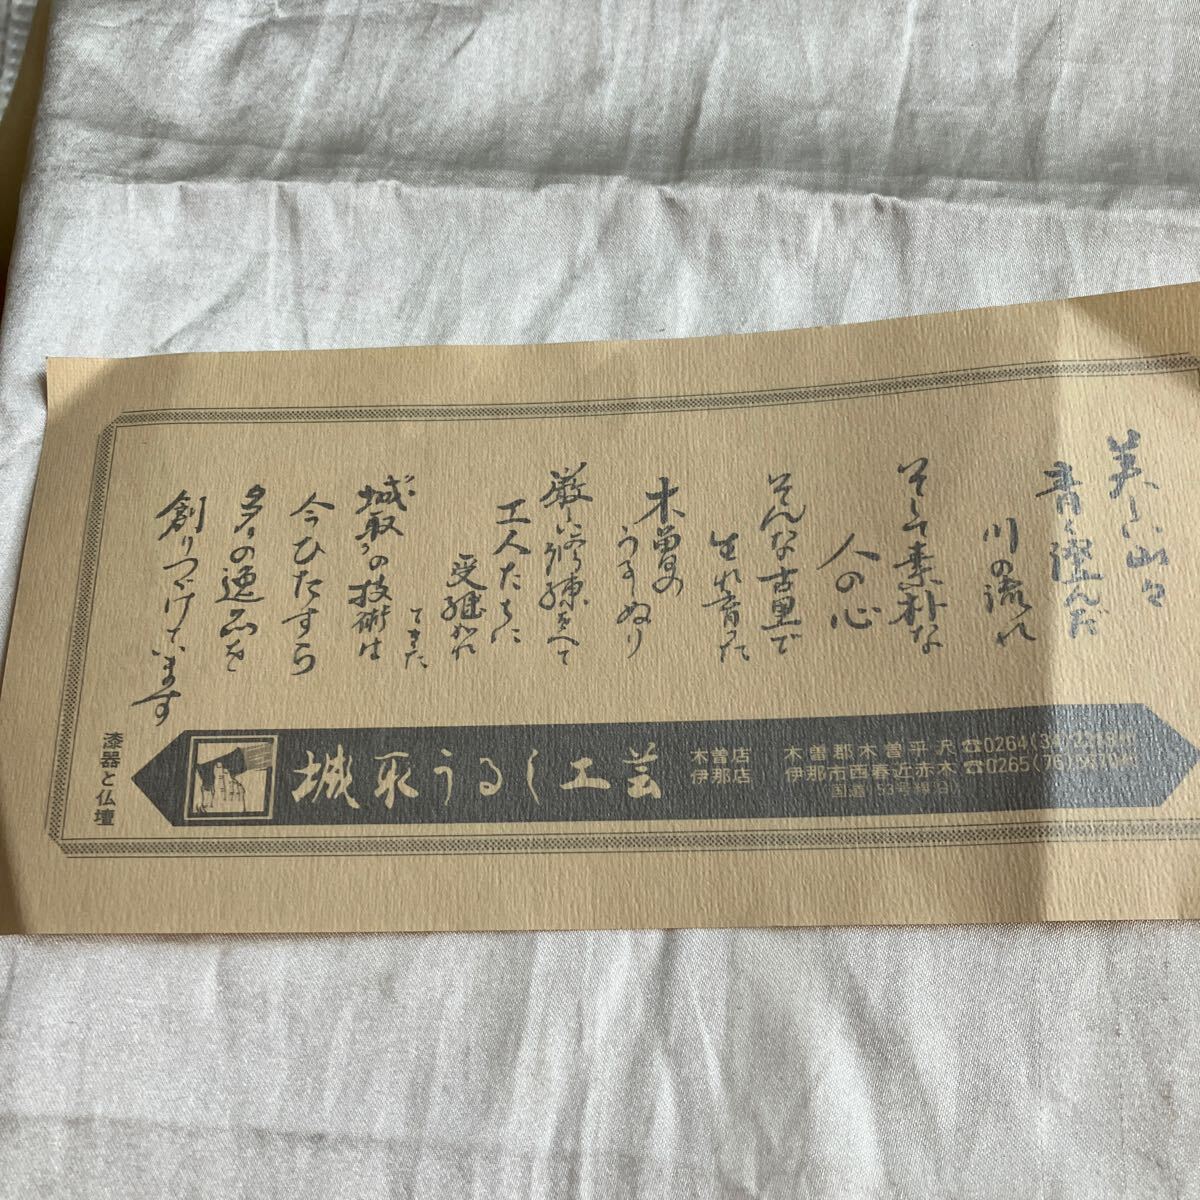 美しい山々
青く澄んだ
川の流れ
そして素朴な
人の心
そんな古里で
生れ育った
木曽の
うるしぬり
厳しい修練をへて
工人たちに
受継がれ
てきた
城取の技術は
今ひたすら
多くの逸品を
創りつづけています
漆器と仏壇
城取うるし工芸
木曽店 木曽郡木曽平沢☎0264(34)
伊那店 伊那市西春近赤木☎0265(76)